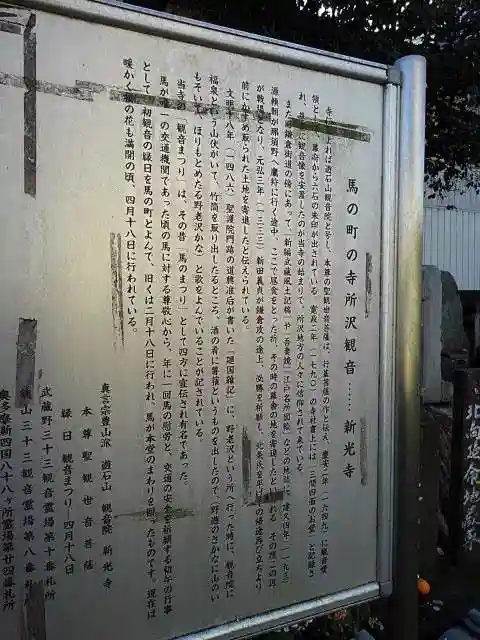 馬の町の寺所沢観音……新光寺
遊石山観音院と号し、本尊の聖観世音菩薩は、行基菩薩の作と伝え、慶安二年(一六四九)に観音堂
領として 幕府から六石の朱印が出されている。寛政二年(一七九〇)の寺社書上には「三間四面のお堂」と記録さ
れ、 観音様を安置したのが当寺の始まりで、所沢地方の人々に信仰されて来ている。
また 鎌倉街道の傍にあって「新編武蔵風土記稿」や「吾妻鏡」「江戸名所図絵」などの地誌に、建久四年(一一九三)
源頼朝が那須野へ鷹狩に行く途中、ここで昼食をとった折、その時の幕舎の地を寄進したといわれる。その際この辺
が戦場となり、元弘三年(一三三三)新田義貞が鎌倉攻の途上、必勝を祈願し、北条氏を平げその帰途再び立ちより
前にかすめ取られた土地を寄進したと伝えられている。
文明十八年(一四八六)聖護院門跡の道興准后が書いた「廻国雑記」に、野老沢という所へ行った時に、観音院に
福泉という山伏がいて、竹筒を取り出したるところ、酒の肴に薯蕷というものを出したので、「野遊のさかなに山のい
もそいて ほりもとめたる野老沢かな」と歌をよんでいることが記されている。
当寺の「観音まつり」は、その昔「馬のまつり」として四方に宣伝され有名であった。
馬が唯一の交通機関であった頃の馬に対する尊敬心から、年に一回馬の慰労と、交通の安全を祈願する初午の行事
として、初観音の縁日を馬の町とよんで、旧くは二月十八日に行われ、馬が本堂のまわりを三回まわったものです。現在は
暖かく桜の花も満開の頃、四月十八日に行われている。
真言宗豊山派 遊石山 観音院 新光寺
本尊 聖観世音菩薩
縁日 観音まつり―四月十八日
武蔵野三十三観音霊場第十番札所
狭山三十三観音霊場第八番札所
奥多摩新四国八十八ケ所霊場第廿四番札所
北向延命地蔵